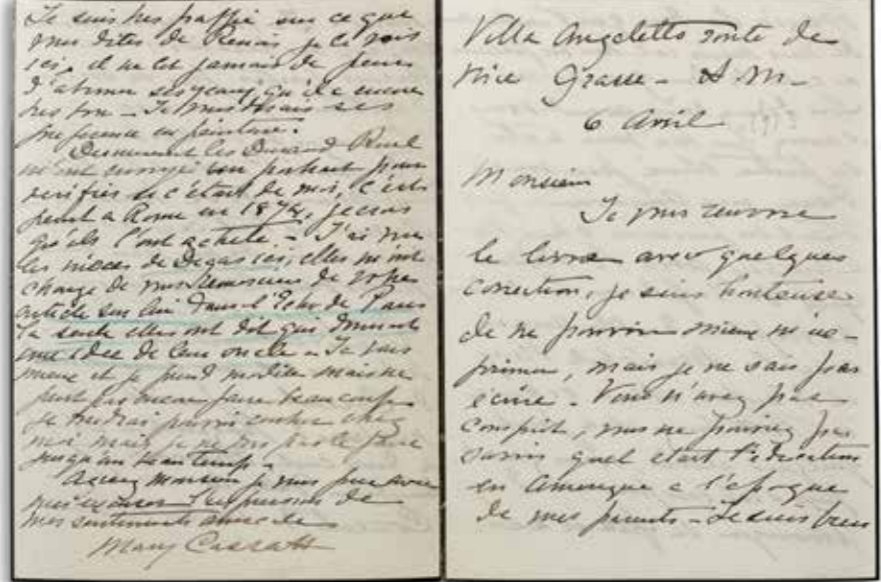 Je suis très frappée sur ce que
vous dites de Renoir je le vois
ici, il ne dit jamais de
d'abimer ses yeux, qu'il a encore
très bon - Je vous dirais ses
preference en peinture.
Dernierement les Durand Ruel
m'ont envoyé un portrait pour
verifier si c'etait de moi, c'est
peint a Rome en 1874, je crois
qu'ils l'ont acheté - J'ai vue
les nieces de Degas ici, elles m'ont
chargé de vous remercier de votre
article sur lui dans l'Echo de Paris
la seule elles ont dit qui donnait
une idee de leur oncle - Je vais
mieux et je prend modèles mais ne
peut pas encore faire beaucoup
je voudrai pouvoir coucher chez
moi mais je ne puis pas le faire
jusqu'au beau temp.
Agreez monsieur je vous prie avec
mes excuses l'expression de
mes sentiments amicale
Mary Cassatt
Villa Angeletto route de
Nice Grasse - A M -
6 Avril
Monsieur
Je vous renvoie
le livre avec quelques
correction, je suis honteuse
de ne pouvoir mieux m'ex-
primer, mais je ne sais pas
ecrire. Vous n'avez pas
compris, vous ne pouviez pas
savoir quel etait l'education
en Amerique a l'epoque
de mes parents - Je suis bien